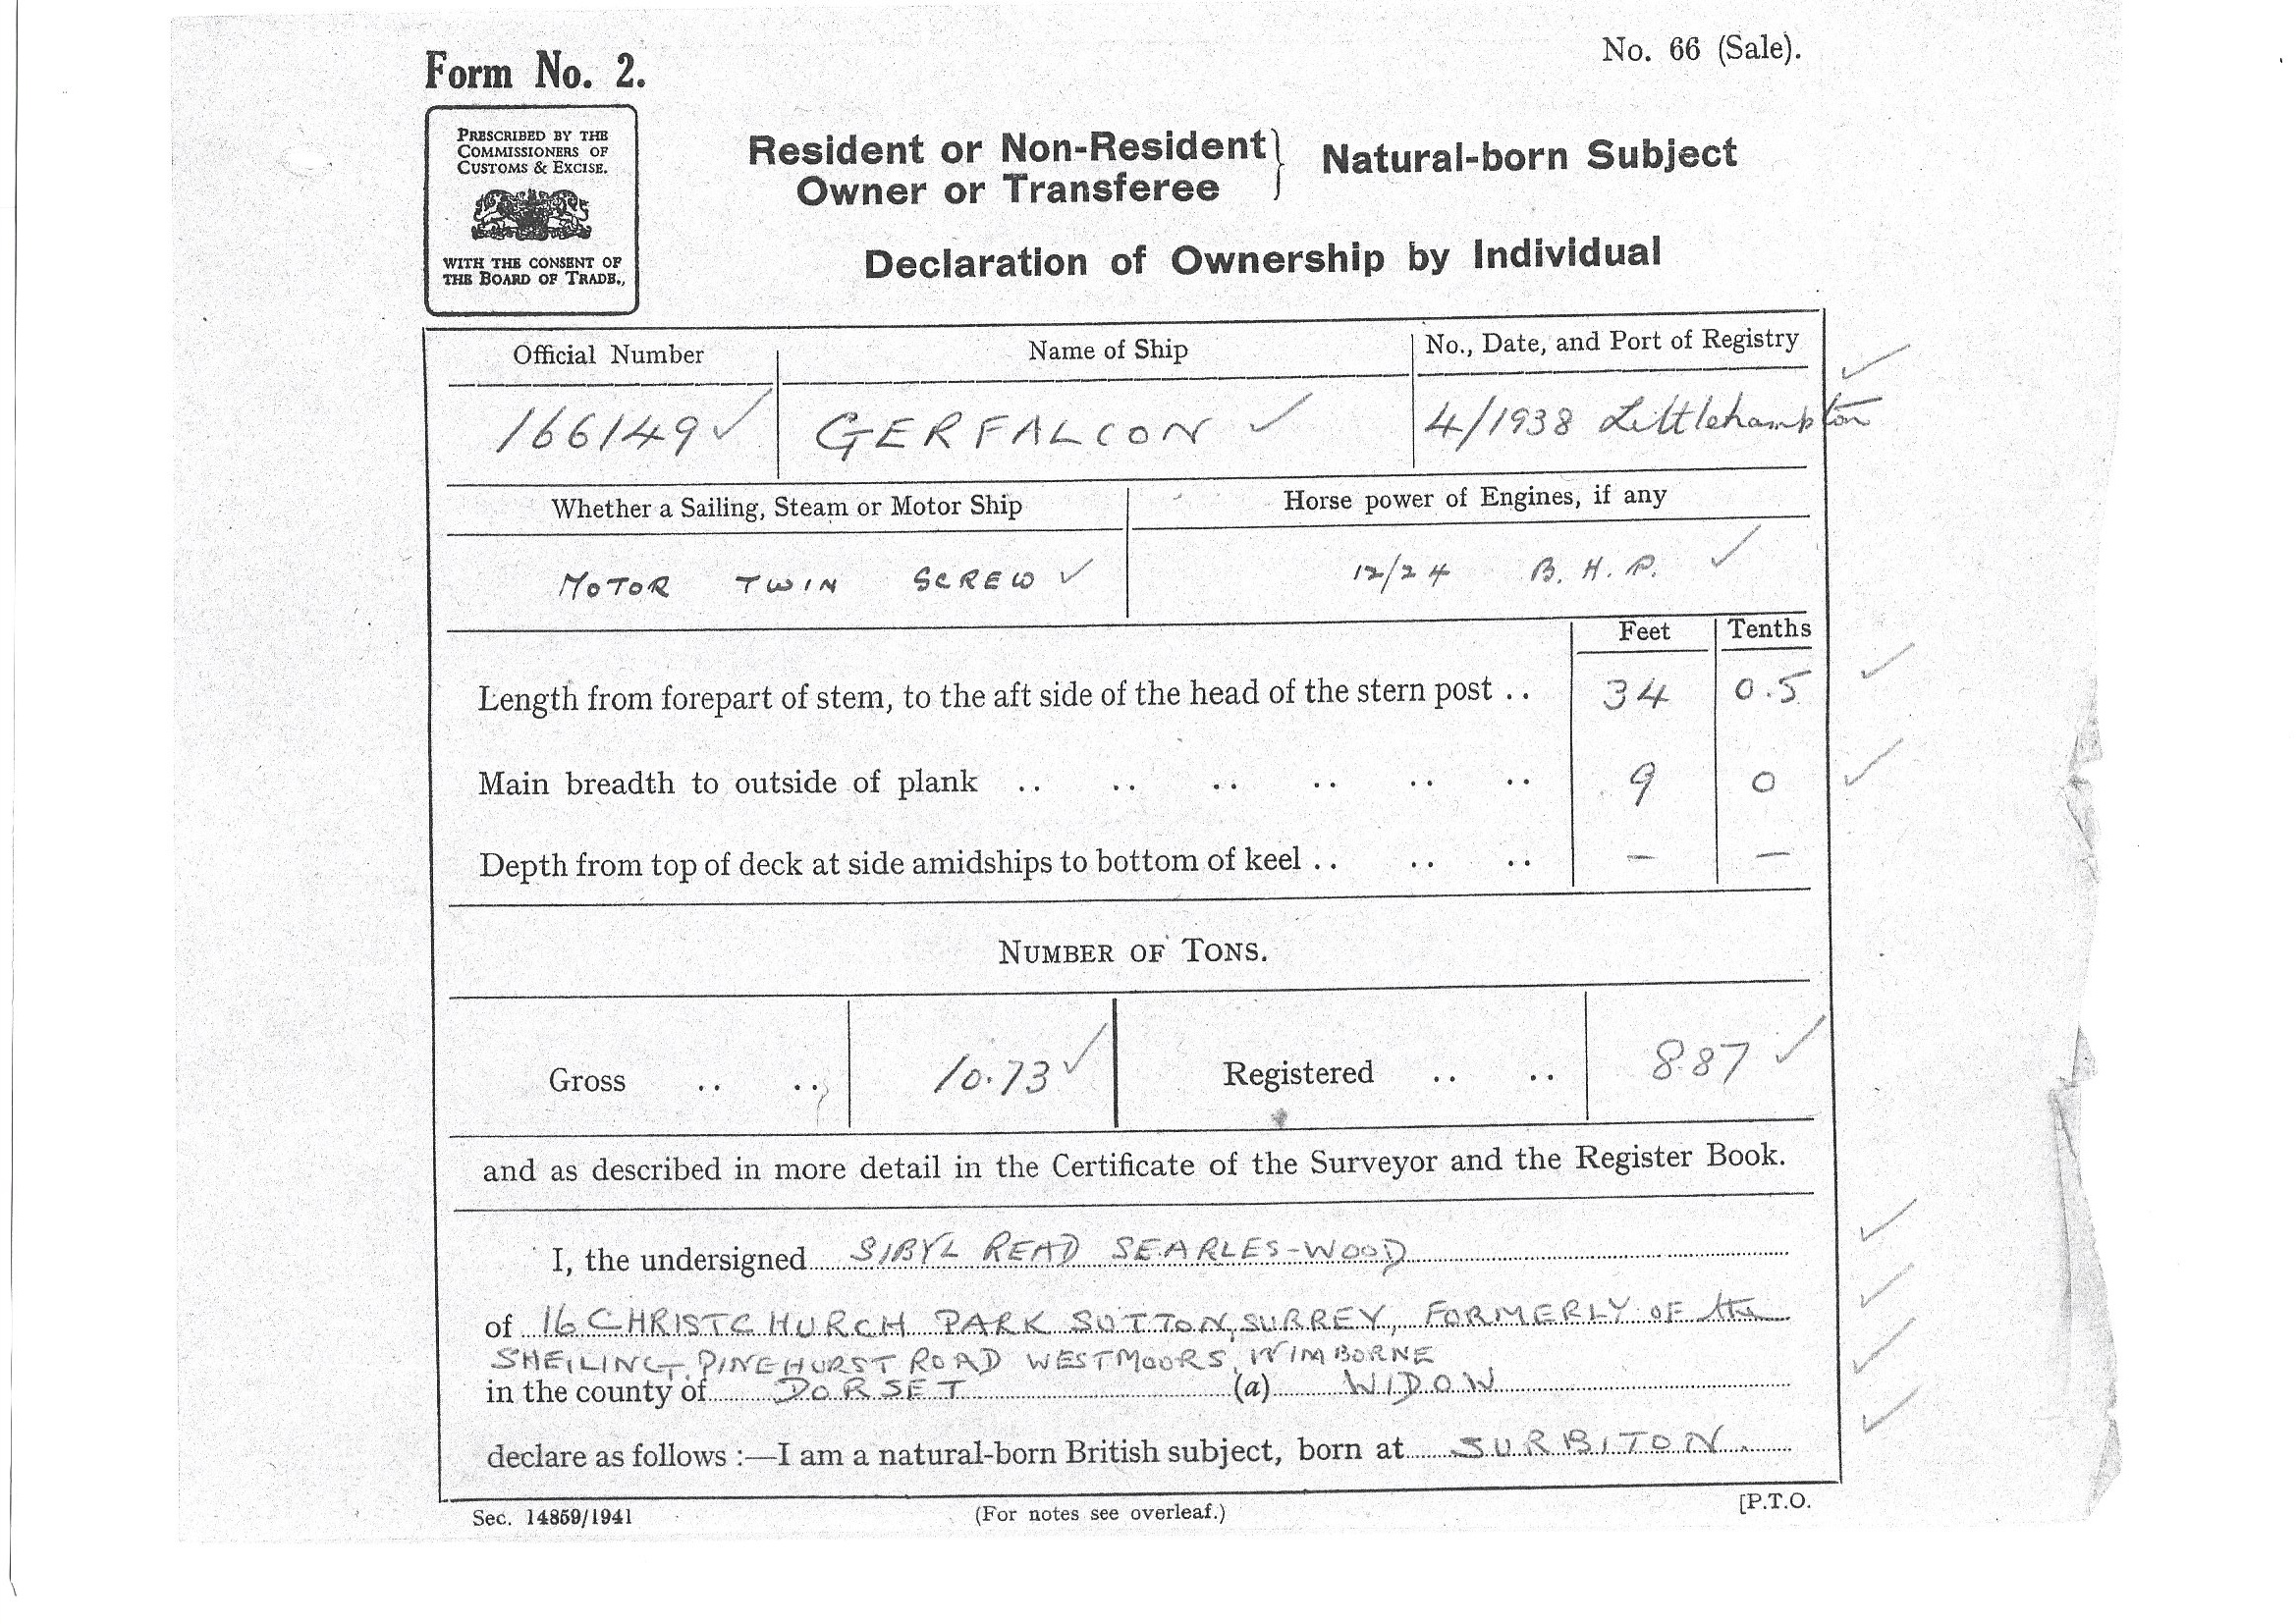 No. 66 (Sale).
Form No. 2.
PRESCRIBED BY THE
COMMISSIONERS OF
CUSTOMS & EXCISE.
WITH THE CONSENT OF
THE BOARD OF TRADE.,
Resident or Non-Resident } Natural-born Subject
Owner or Transferee
Declaration of Ownership by Individual
Official Number Name of Ship No., Date, and Port of Registry
166149 ✓ GERFALCON ✓ 4/1938 Littlehampton ✓
Whether a Sailing, Steam or Motor Ship Horse power of Engines, if any
MOTOR TWIN SCREW ✓ 12/24 B.H.P. ✓
Feet Tenths
Length from forepart of stem, to the aft side of the head of the stern post .. 34 0.5 ✓
Main breadth to outside of plank .. .. .. .. .. .. 9 0 ✓
Depth from top of deck at side amidships to bottom of keel .. .. .. — —
NUMBER OF TONS.
Gross .. .. 10.73 ✓ Registered .. .. 8.87 ✓
and as described in more detail in the Certificate of the Surveyor and the Register Book.
I, the undersigned SIBYL READ SEARLES-WOOD ✓
of 16 CHRISTCHURCH PARK SUTTON, SURREY, FORMERLY OF the ✓
SHEILING, PINEHURST ROAD WESTMOORS, WIMBORNE ✓
in the county of DORSET (a) WIDOW
declare as follows :—I am a natural-born British subject, born at SURBITON. ✓
Sec. 14859/1941 (For notes see overleaf.) [P.T.O.